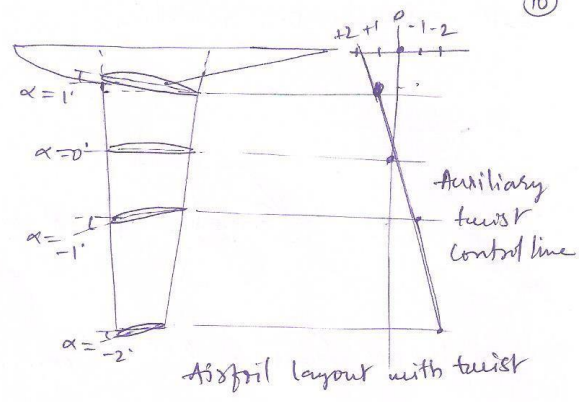 10
+2 +1 0 -1 -2
α = 1°
α = 0°
α = -1°
α = -2°
Auxiliary
twist
control line
Airfoil layout with twist